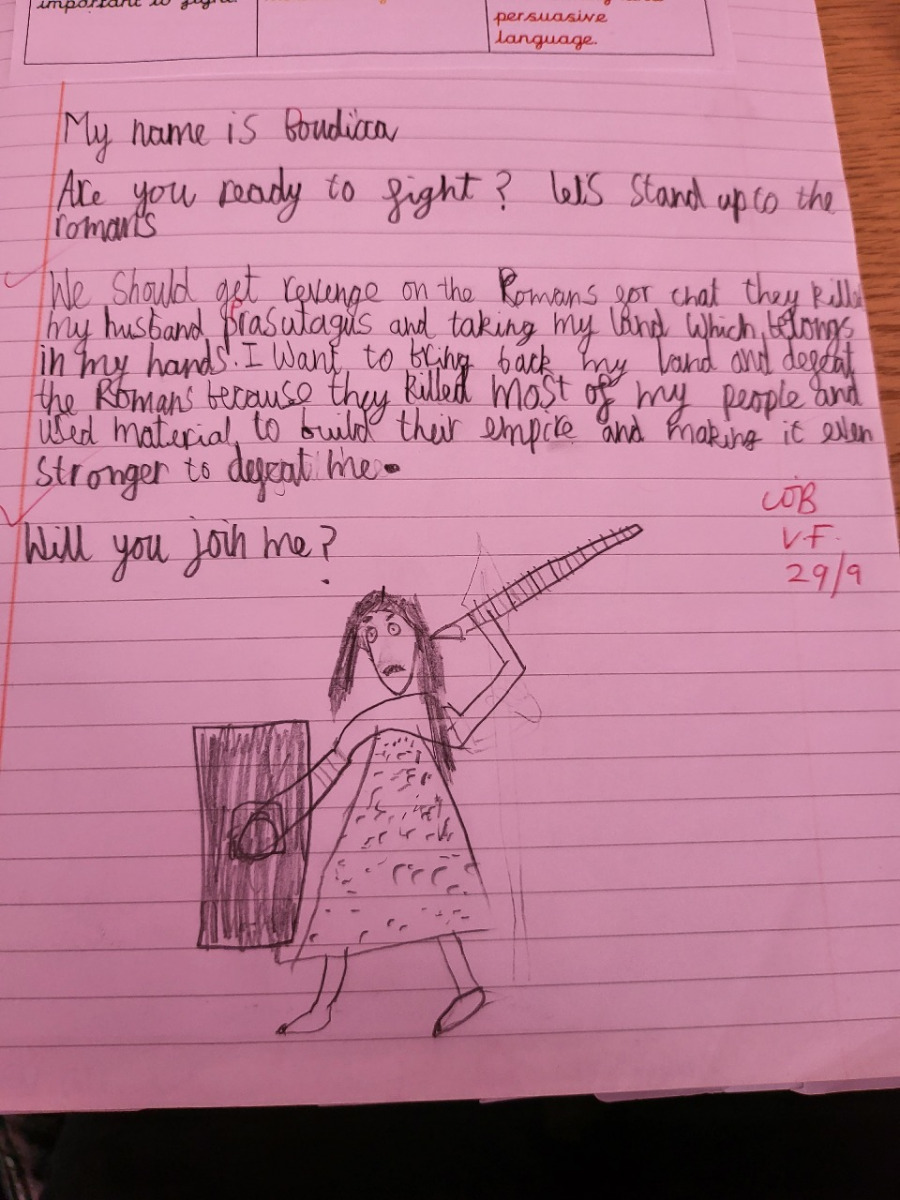 important to fight.
persuasive
language.
My name is Boudicca
Are you ready to fight? let's Stand up to the
romans
We Should get revenge on the Romans for that they killed
my husband prasutagus and taking my land which belongs
in my hands. I Want to bring back my land and defeat
the Romans because they killed most of my people and
used material to build their empire and making it even
Stronger to defeat me.
Will you join me?
WB
V.F.
29/9